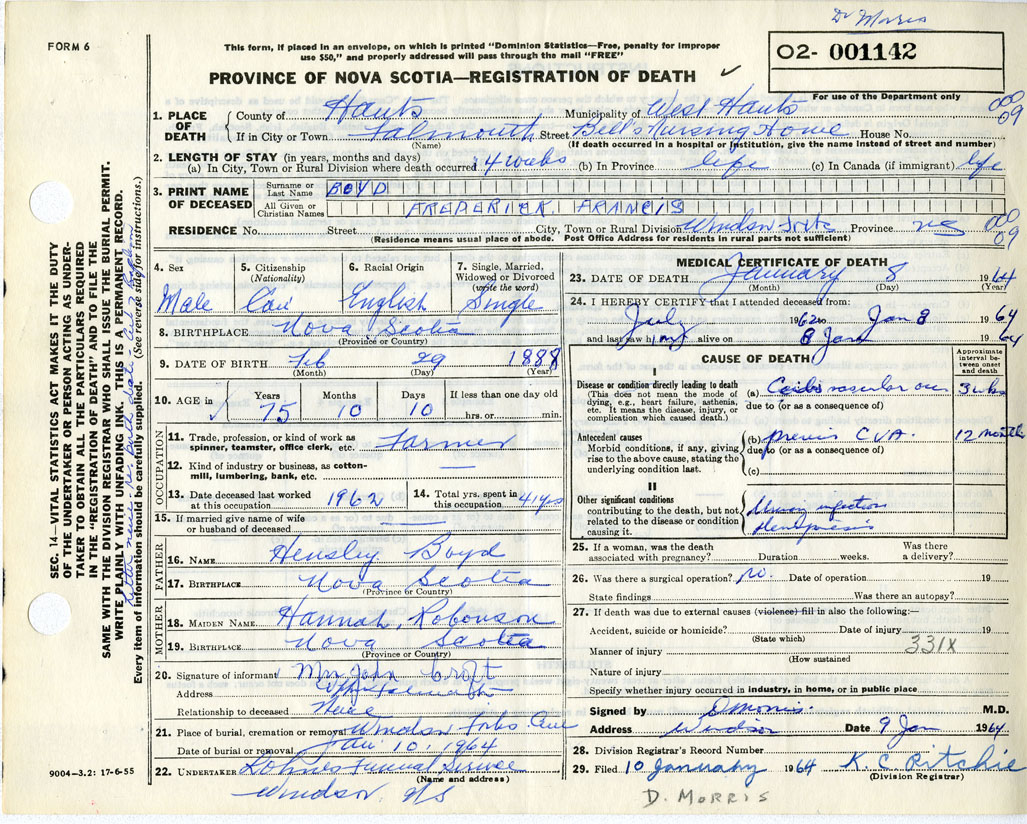 Dr Morris
FORM 6
This form, if placed in an envelope, on which is printed "Dominion Statistics—Free, penalty for improper
use $50," and properly addressed will pass through the mail "FREE"
O2- 001142
PROVINCE OF NOVA SCOTIA—REGISTRATION OF DEATH ✓
For use of the Department only
000
09
1. PLACE OF DEATH
County of Hants Municipality of West Hants
If in City or Town Falmouth Street Bell's Nursing Home House No.
(Name) (If death occurred in a hospital or institution, give the name instead of street and number)
2. LENGTH OF STAY (in years, months and days)
(a) In City, Town or Rural Division where death occurred 4 weeks (b) In Province life (c) In Canada (if immigrant) life
3. PRINT NAME OF DECEASED
Surname or Last Name BOYD
All Given or Christian Names FREDERICK FRANCIS
RESIDENCE No. Street City, Town or Rural Division Windsor Forks Province NS
000
09
(Residence means usual place of abode. Post Office Address for residents in rural parts not sufficient)
SEC. 14—VITAL STATISTICS ACT MAKES IT THE DUTY
OF THE UNDERTAKER OR PERSON ACTING AS UNDER-
TAKER TO OBTAIN ALL THE PARTICULARS REQUIRED
IN THE "REGISTRATION OF DEATH" AND TO FILE THE
SAME WITH THE DIVISION REGISTRAR WHO SHALL ISSUE THE BURIAL PERMIT.
WRITE PLAINLY WITH UNFADING INK. THIS IS A PERMANENT RECORD.
Every item of information should be carefully supplied. (See reverse side for instructions.)
4. Sex Male
5. Citizenship (Nationality) Can
6. Racial Origin English
7. Single, Married, Widowed or Divorced (write the word) Single
8. BIRTHPLACE Nova Scotia
(Province or Country)
9. DATE OF BIRTH Feb 29 1888
(Month) (Day) (Year)
10. AGE in Years 75 Months 10 Days 10 If less than one day old hrs. or min.
OCCUPATION
11. Trade, profession, or kind of work as spinner, teamster, office clerk, etc. Farmer
12. Kind of industry or business, as cotton-mill, lumbering, bank, etc. —
13. Date deceased last worked at this occupation 1962 14. Total yrs. spent in this occupation 41 yrs
15. If married give name of wife or husband of deceased —
FATHER
16. NAME Hensley Boyd
17. BIRTHPLACE Nova Scotia
(Province or Country)
MOTHER
18. MAIDEN NAME Hannah Robonson
19. BIRTHPLACE Nova Scotia
(Province or Country)
20. Signature of informant Mrs John Croft
Address Falmouth
Relationship to deceased Niece
21. Place of burial, cremation or removal Windsor Forks
Date of burial or removal Jan 10, 1964
22. UNDERTAKER Lohnes Funeral Service
(Name and address)
Windsor N/S
9004—3.2: 17-6-55
MEDICAL CERTIFICATE OF DEATH
23. DATE OF DEATH January 8 1964
(Month) (Day) (Year)
24. I HEREBY CERTIFY that I attended deceased from:
July 1962 to Jan 8 1964
and last saw him alive on 8 Jan 1964
CAUSE OF DEATH
Approximate interval between onset and death
I
Disease or condition directly leading to death
(This does not mean the mode of dying, e.g., heart failure, asthenia, etc. It means the disease, injury, or complication which caused death.)
(a) vascular 3 wks
due to (or as a consequence of)
Antecedent causes
Morbid conditions, if any, giving rise to the above cause, stating the underlying condition last.
(b) CVA. 12 months
due to (or as a consequence of)
(c)
II
Other significant conditions contributing to the death, but not related to the disease or condition causing it.
Urinary infection
25. If a woman, was the death associated with pregnancy? Duration weeks. Was there a delivery?
26. Was there a surgical operation? no. Date of operation 19
State findings Was there an autopsy?
27. If death was due to external causes (violence) fill in also the following:—
Accident, suicide or homicide? Date of injury 19
(State which)
Manner of injury 331X
(How sustained
Nature of injury
Specify whether injury occurred in industry, in home, or in public place
Signed by D Morris. M.D.
Address Windsor Date 9 Jan 1964
28. Division Registrar's Record Number
29. Filed 10 January 1964 K. C. Ritchie
(Division Registrar)
D. MORRIS